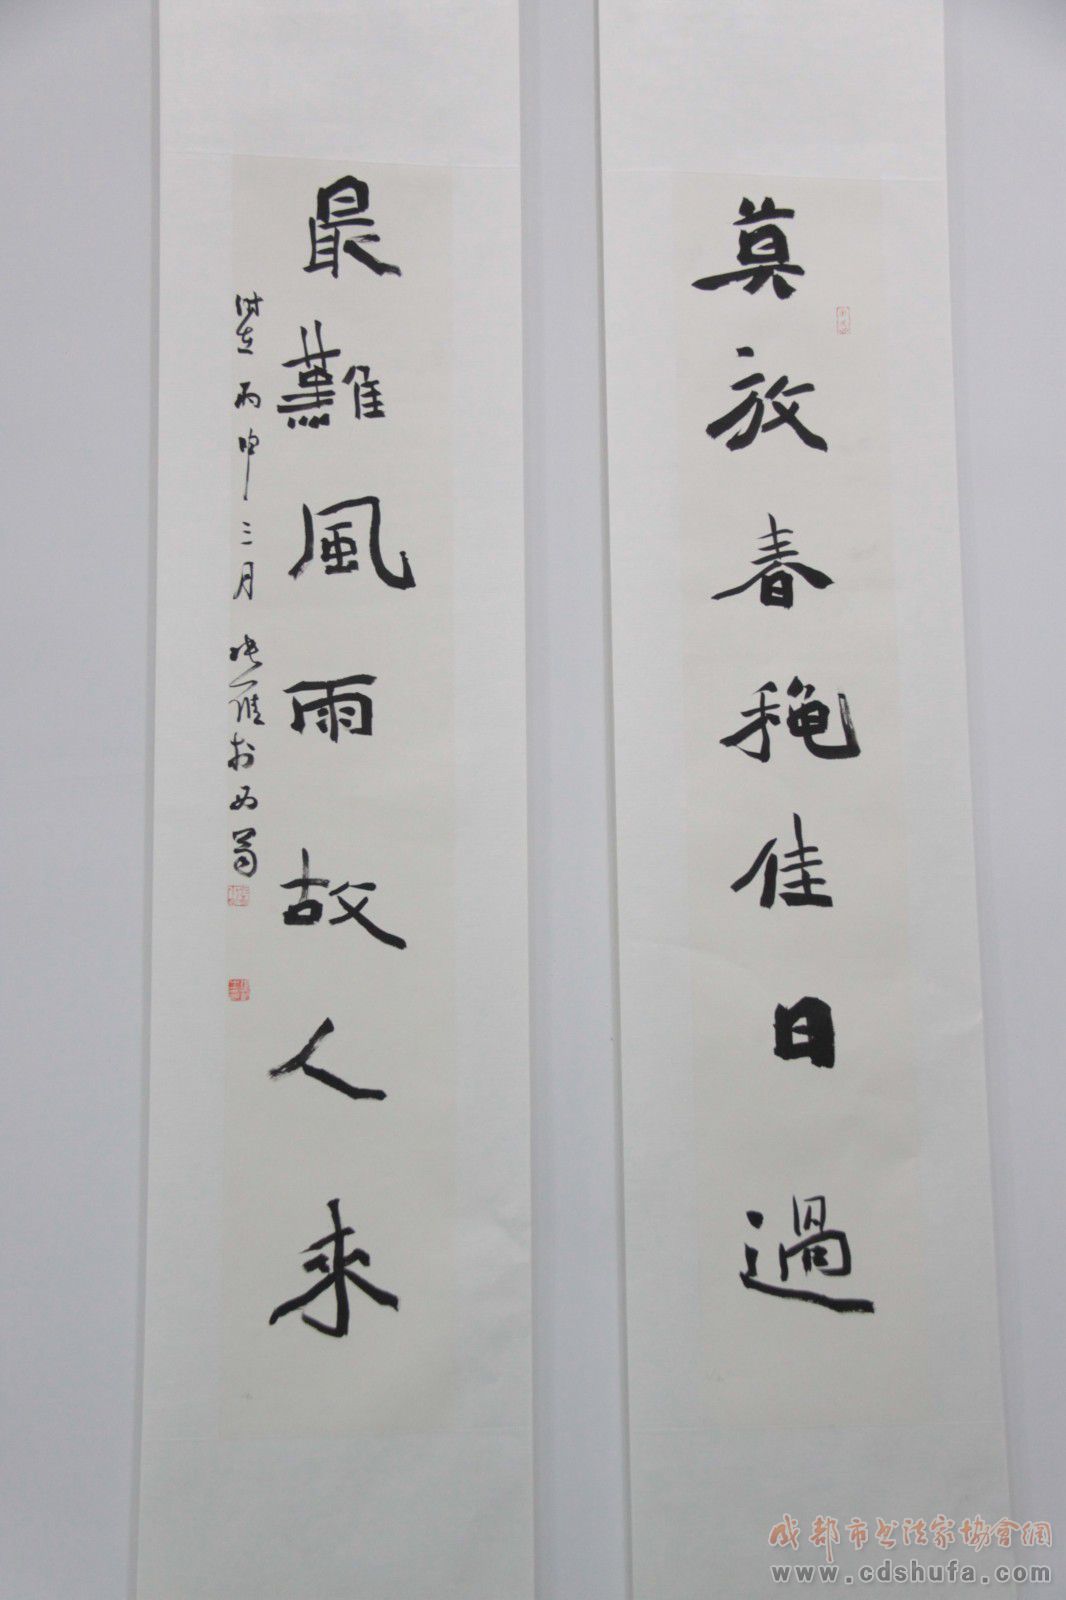 莫放春穐佳日過
最難風雨故人來
時在丙申三月
成都市书法家協會網
www.cdshufa.com